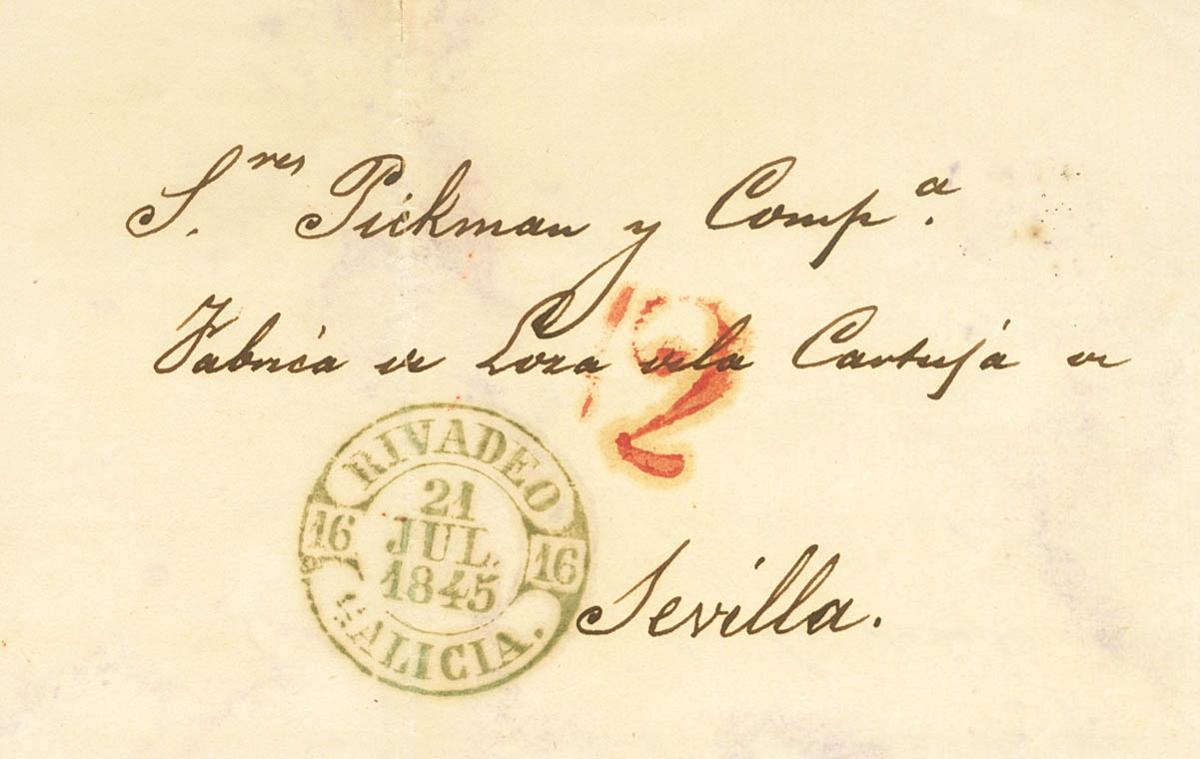 S.res Pickman y Comp.a
Fabrica de Loza de la Cartuja de
12
Sevilla.
RIVADEO
21
JUL.
1845
16
16
GALICIA.